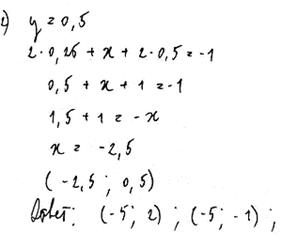 2) y = 0,5
2·0,25 + x + 2·0,5 = -1
0,5 + x + 1 = -1
1,5 + 1 = -x
x = -2,5
(-2,5; 0,5)
Ответ: (-5; 2); (-5; -1);